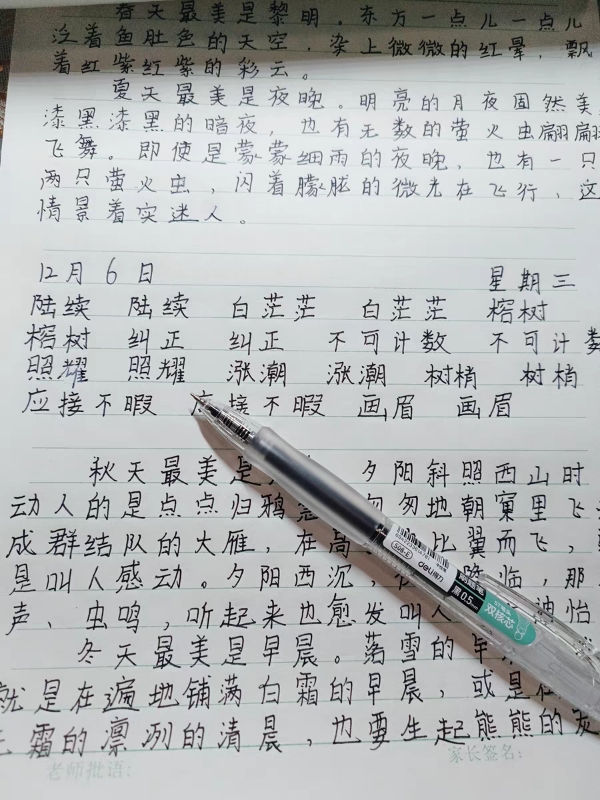 春天最美是黎明。东方一点儿一点儿
泛着鱼肚色的天空,染上微微的红晕,飘
着红紫红紫的彩云。
夏天最美是夜晚。明亮的月夜固然美
漆黑漆黑的暗夜,也有无数的萤火虫翩翩
飞舞。即使是蒙蒙细雨的夜晚,也有一只
两只萤火虫,闪着朦胧的微光在飞行,这
情景着实迷人。
12月6日 星期三
陆续 陆续 白茫茫 白茫茫 榕树
榕树 纠正 纠正 不可计数 不可计数
照耀 照耀 涨潮 涨潮 树梢 树梢
应接不暇 应接不暇 画眉 画眉
秋天最美是 夕阳斜照西山时
动人的是点点归鸦急 匆匆地朝窠里飞
成群结队的大雁,在高 比翼而飞,
是叫人感动。夕阳西沉, 临,那
声、虫鸣,听起来也愈发叫人 怡
冬天最美是早晨。落雪的早
就是在遍地铺满白霜的早晨,或是在
无霜的凛冽的清晨,也要生起熊熊的炭
老师批语: 家长签名:
S08-E
deli得力
黑0.5mm
双核芯